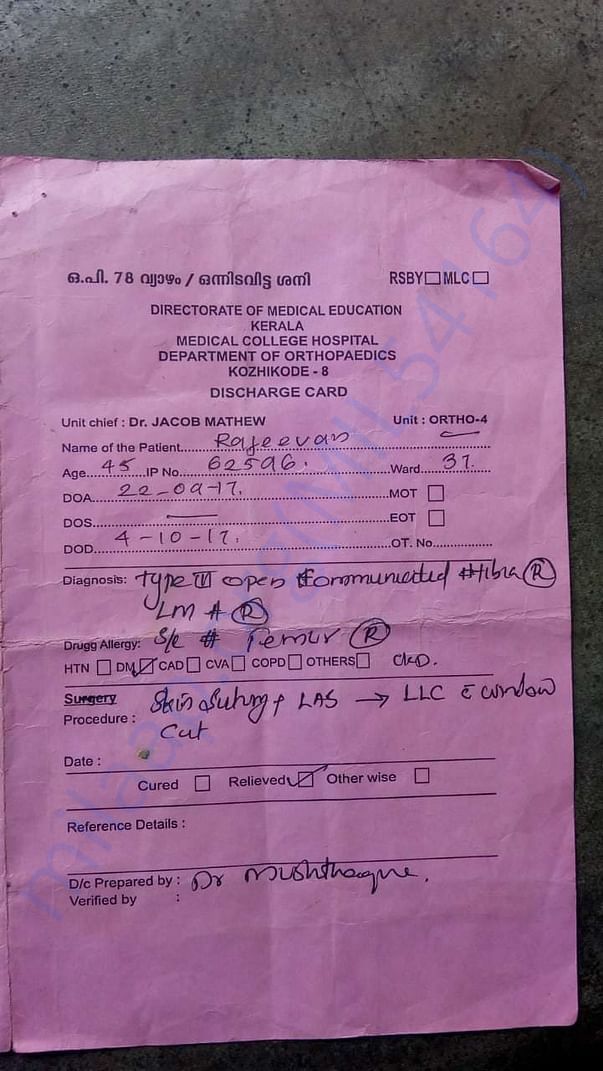 ഒ.പി. 78 വ്യാഴം / ഒന്നിടവിട്ട ശനി RSBY MLC
DIRECTORATE OF MEDICAL EDUCATION
KERALA
MEDICAL COLLEGE HOSPITAL
DEPARTMENT OF ORTHOPAEDICS
KOZHIKODE - 8
DISCHARGE CARD
Unit chief : Dr. JACOB MATHEW Unit : ORTHO-4
Name of the Patient Rajeevan
Age 45 IP No. 62596. Ward 37.
DOA 22-09-17. MOT
DOS — EOT
DOD 4-10-17. OT. No.
Diagnosis: Type III open Communicated # tibia (R)
LM # (R)
Drugg Allergy: S/C # Femur (R)
HTN DM CAD CVA COPD OTHERS CKD.
Surgery Skin Suturing + LAS → LLC c window
Procedure : Cut
Date :
Cured Relieved Other wise
Reference Details :
D/c Prepared by : Dr
Verified by :
milaap.org (MIL 54164)